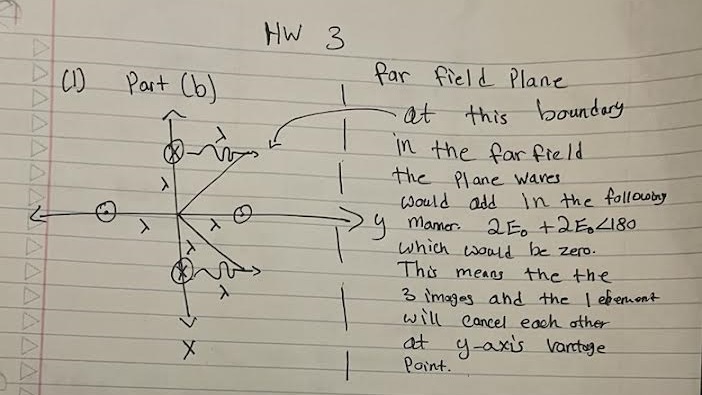 HW 3
(1) Part (b)
far field Plane
at this boundary
in the farfield
the plane waves
would add in the following
manner. 2E₀ + 2E₀∠180
which would be zero.
This means the the
3 images and the 1 element
will cancel each other
at y-axis vantage
point.
λ
λ
λ
λ
y
λ
λ
x